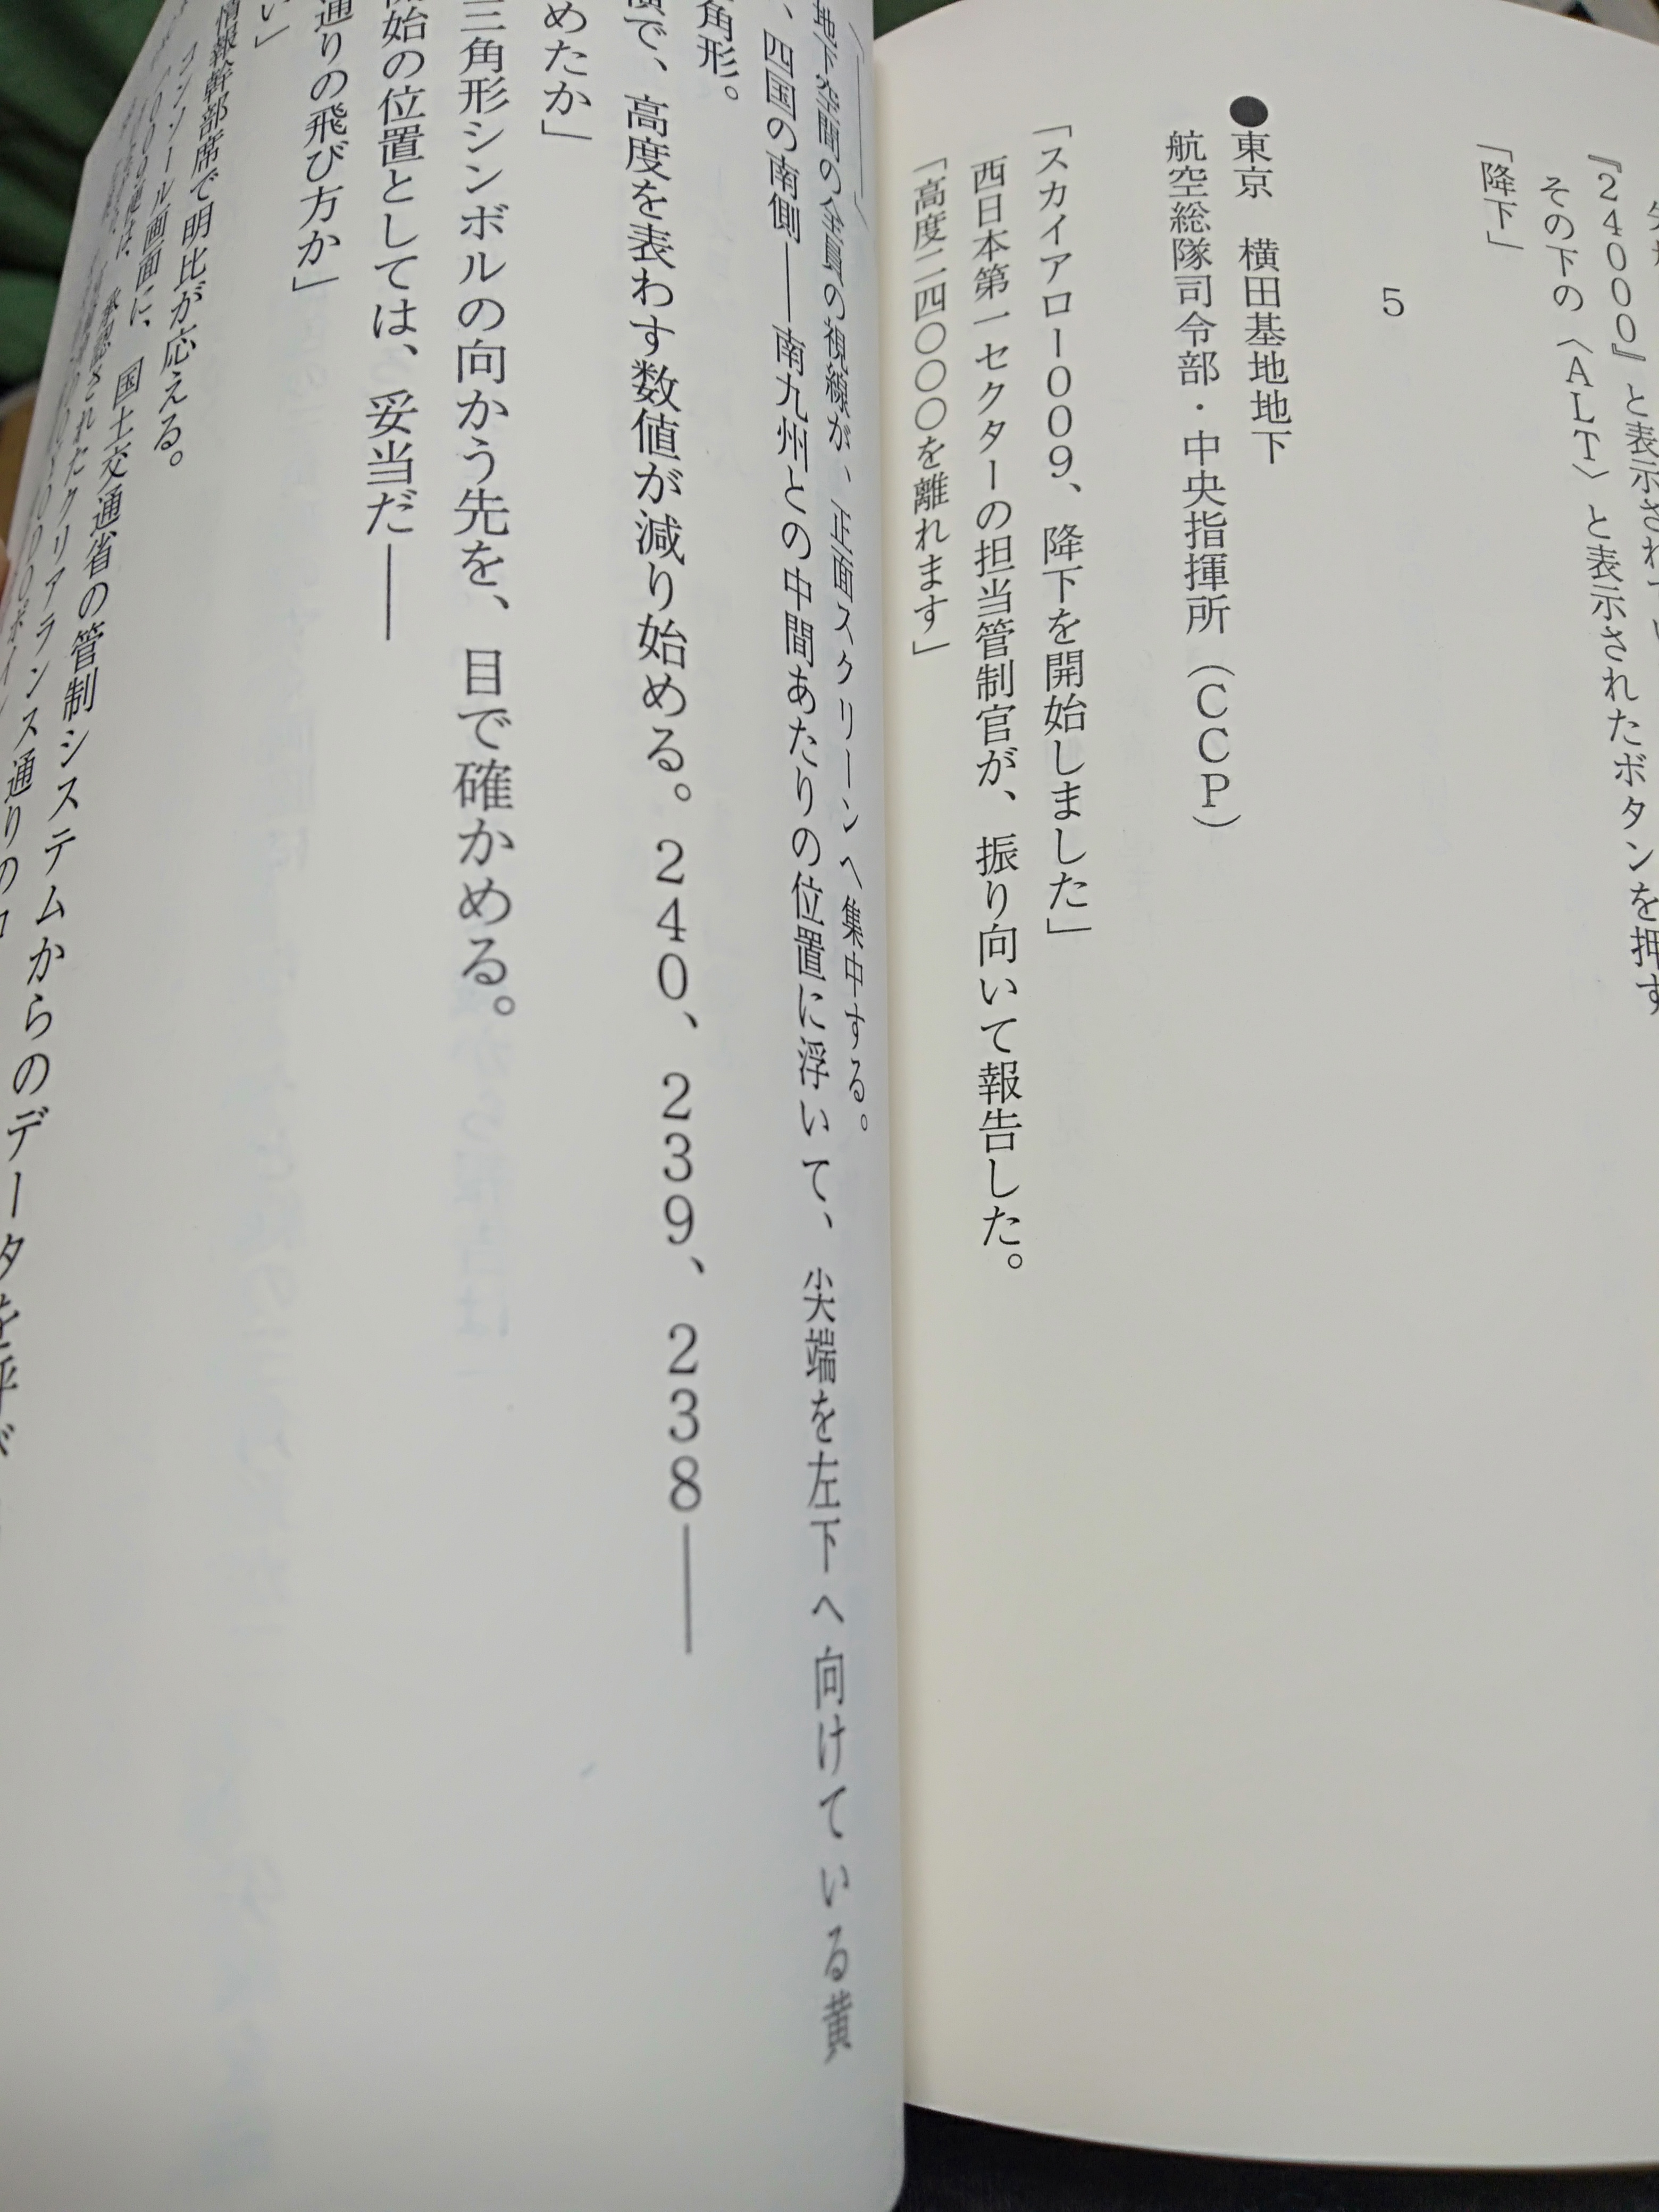 『２４０００』と表示され
その下の〈ＡＬＴ〉と表示されたボタンを押す
「降下」
5
●東京　横田基地地下
航空総隊司令部・中央指揮所（ＣＣＰ）
「スカイアロー００９、降下を開始しました」
西日本第一セクターの担当管制官が、振り向いて報告した。
「高度二四〇〇〇を離れます」
地下空間の全員の視線が、正面スクリーンへ集中する。
、四国の南側――南九州との中間あたりの位置に浮いて、尖端を左下へ向けている黄
角形。
で、高度を表わす数値が減り始める。２４０、２３９、２３８――
めたか」
三角形シンボルの向かう先を、目で確かめる。
開始の位置としては、妥当だ――
通りの飛び方か」
い」
情報幹部席で明比が応える。
コンソール画面に、国土交通省の管制システムからのデータを呼び
承認されたクリアランス通りの